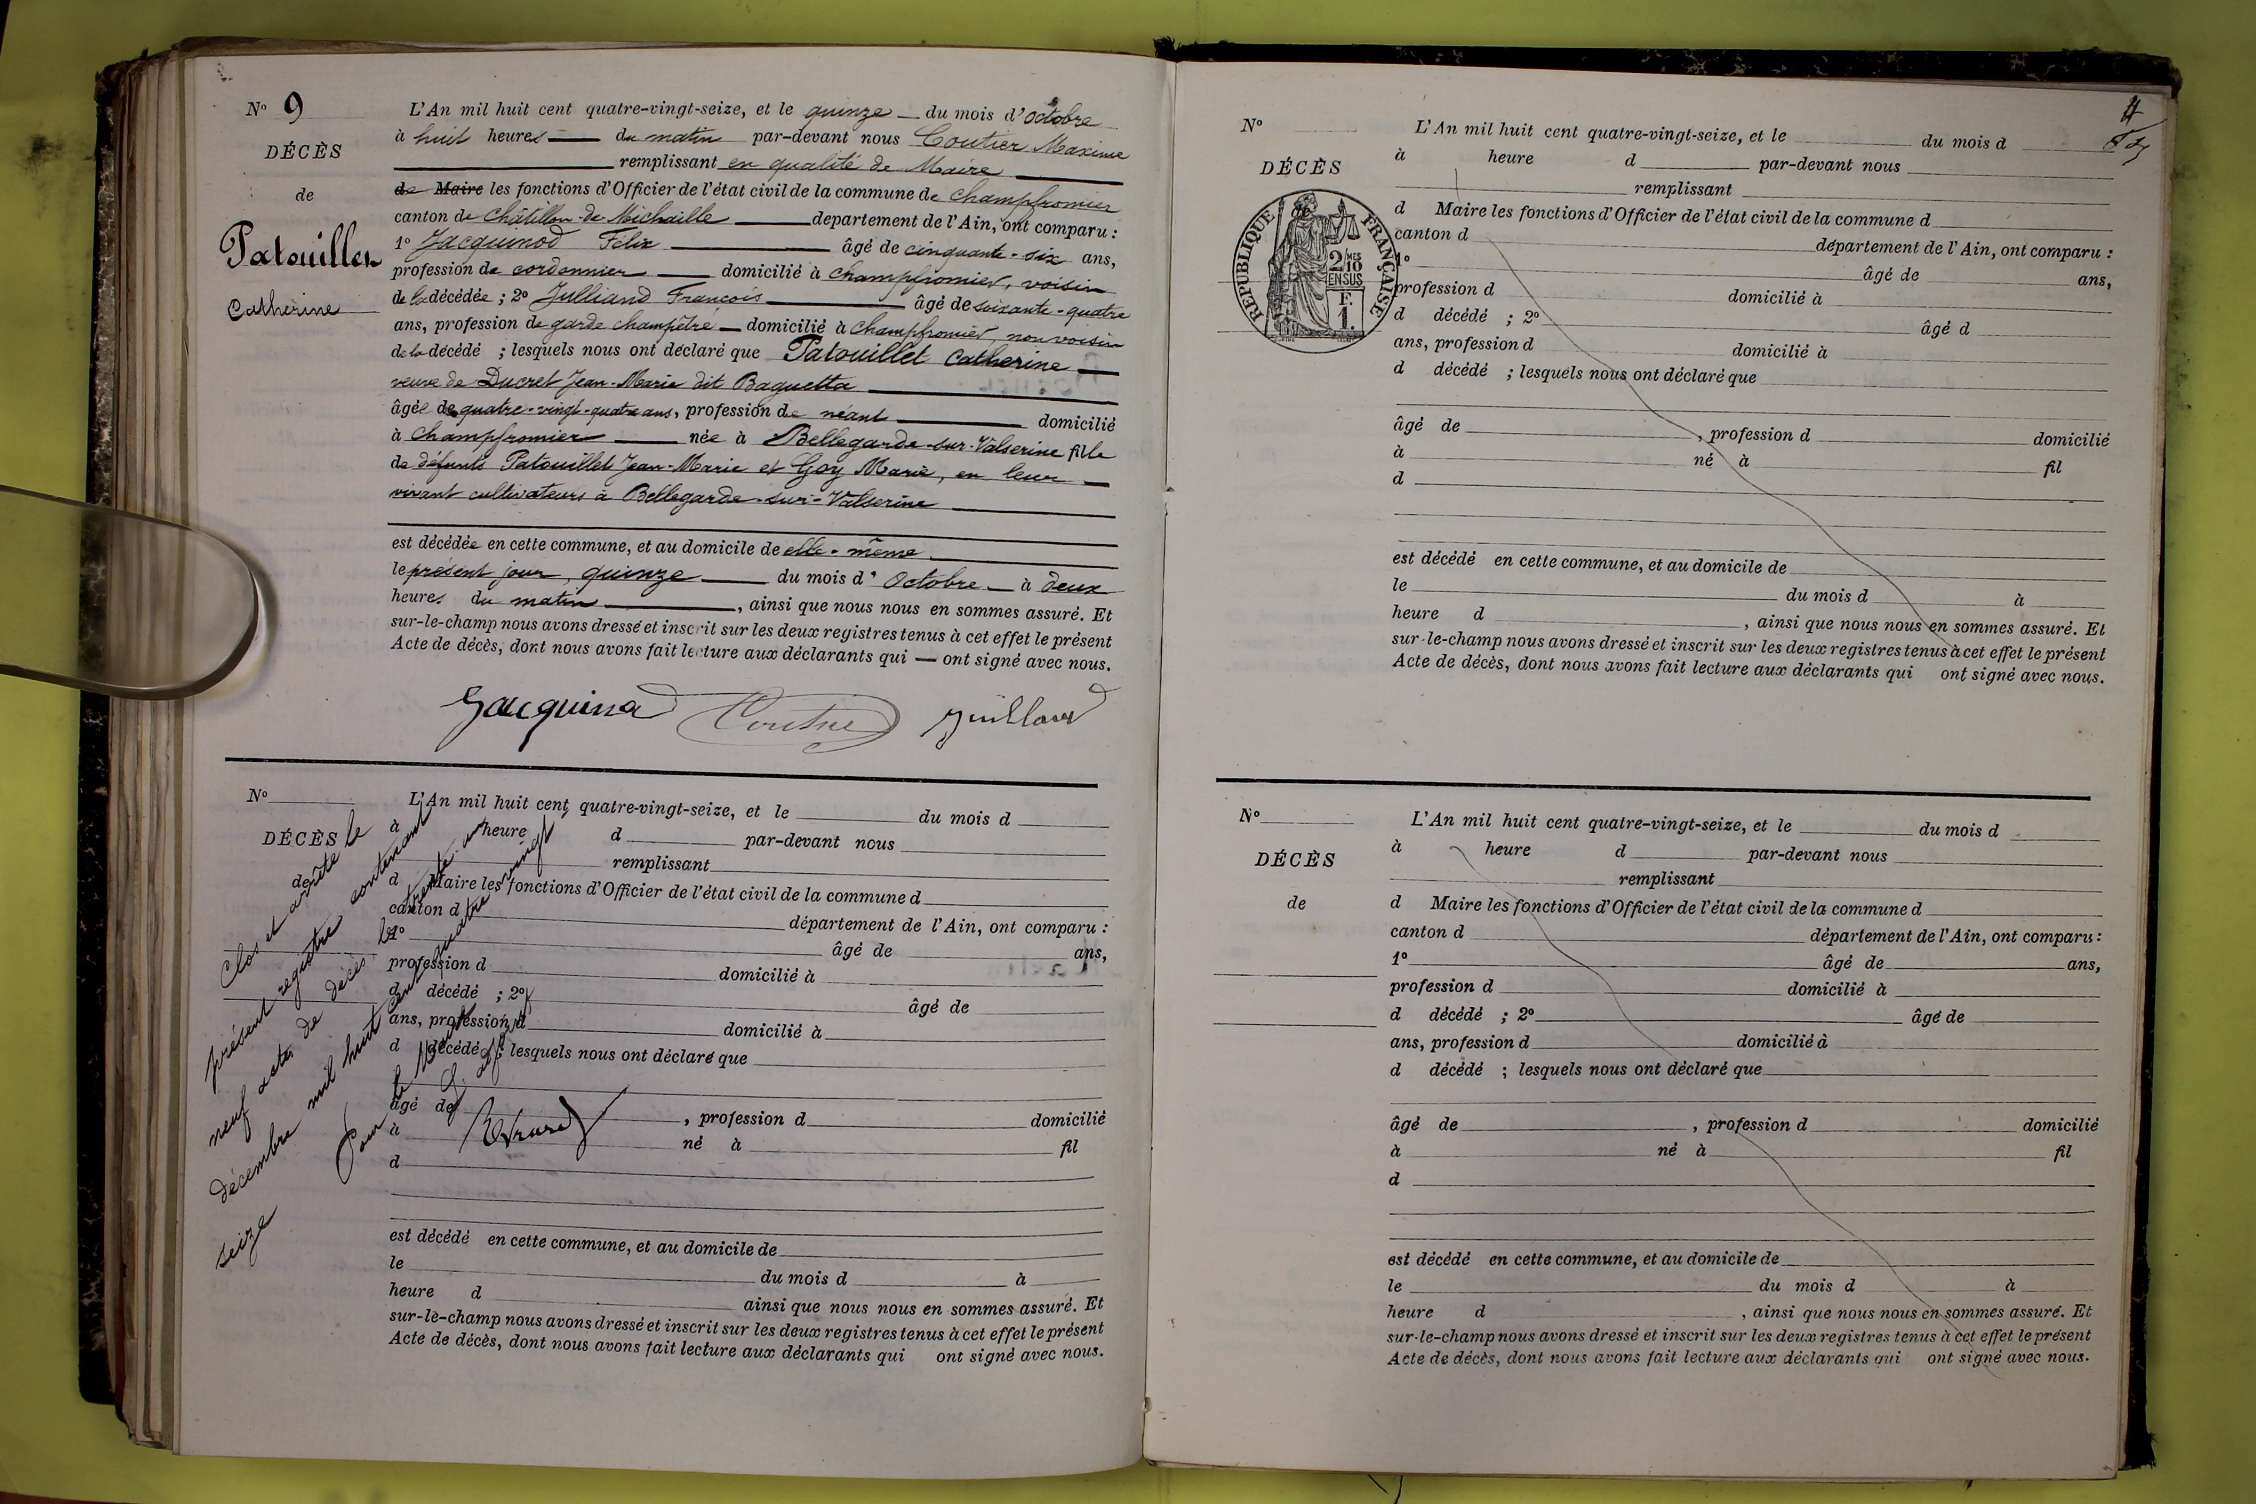 N° 9
DÉCÈS
de
Patouillet
Catherine
L'An mil huit cent quatre-vingt-seize, et le quinze du mois d'octobre
à huit heures du matin par-devant nous Coutier Maxime
remplissant en qualité de Maire
de Maire les fonctions d'Officier de l'état civil de la commune de Champfromier
canton de Châtillon-de-Michaille département de l'Ain, ont comparu :
1° Jacquinod Félix âgé de cinquante-six ans,
profession de cordonnier domicilié à Champfromier, voisin
de la décédée ; 2° Julliand François âgé de soixante-quatre
ans, profession de garde champêtre domicilié à Champfromier, non voisin
de la décédé ; lesquels nous ont déclaré que Patouillet Catherine
veuve de Ducret Jean-Marie dit Baguetta
âgée de quatre-vingt-quatre ans, profession de néant domicilié
à Champfromier née à Bellegarde-sur-Valserine fille
de défunts Patouillet Jean-Marie et Goy Marie, en leur
vivant cultivateurs à Bellegarde-sur-Valserine
est décédée en cette commune, et au domicile de elle-même
le présent jour, quinze du mois d'Octobre à deux
heures du matin, ainsi que nous nous en sommes assuré. Et
sur-le-champ nous avons dressé et inscrit sur les deux registres tenus à cet effet le présent
Acte de décès, dont nous avons fait lecture aux déclarants qui ont signé avec nous.
Jacquinod Coutier Juilland
N°
DÉCÈS
de
L'An mil huit cent quatre-vingt-seize, et le du mois d
à heure d par-devant nous
remplissant
d Maire les fonctions d'Officier de l'état civil de la commune d
canton d département de l'Ain, ont comparu :
1° âgé de ans,
profession d domicilié à
d décédé ; 2° âgé de
ans, profession d domicilié à
d décédé ; lesquels nous ont déclaré que
âgé de , profession d domicilié
à né à fil
d
est décédé en cette commune, et au domicile de
le du mois d à
heure d ainsi que nous nous en sommes assuré. Et
sur-le-champ nous avons dressé et inscrit sur les deux registres tenus à cet effet le présent
Acte de décès, dont nous avons fait lecture aux déclarants qui ont signé avec nous.
Clos et arrêté le
présent registre contenant
neuf actes de décès le trente-un
décembre mil huit cent quatre vingt
seize
Pour le Maire
N°
DÉCÈS
RÉPUBLIQUE FRANÇAISE
2/10 MES
EN SUS
F.
1.
L'An mil huit cent quatre-vingt-seize, et le du mois d
à heure d par-devant nous
remplissant
d Maire les fonctions d'Officier de l'état civil de la commune d
canton d département de l'Ain, ont comparu :
1° âgé de ans,
profession d domicilié à
d décédé ; 2° âgé d
ans, profession d domicilié à
d décédé ; lesquels nous ont déclaré que
âgé de , profession d domicilié
à né à fil
d
est décédé en cette commune, et au domicile de
le du mois d à
heure d , ainsi que nous nous en sommes assuré. Et
sur-le-champ nous avons dressé et inscrit sur les deux registres tenus à cet effet le présent
Acte de décès, dont nous avons fait lecture aux déclarants qui ont signé avec nous.
N°
DÉCÈS
de
L'An mil huit cent quatre-vingt-seize, et le du mois d
à heure d par-devant nous
remplissant
d Maire les fonctions d'Officier de l'état civil de la commune d
canton d département de l'Ain, ont comparu :
1° âgé de ans,
profession d domicilié à
d décédé ; 2° âgé de
ans, profession d domicilié à
d décédé ; lesquels nous ont déclaré que
âgé de , profession d domicilié
à né à fil
d
est décédé en cette commune, et au domicile de
le du mois d à
heure d , ainsi que nous nous en sommes assuré. Et
sur-le-champ nous avons dressé et inscrit sur les deux registres tenus à cet effet le présent
Acte de décès, dont nous avons fait lecture aux déclarants qui ont signé avec nous.